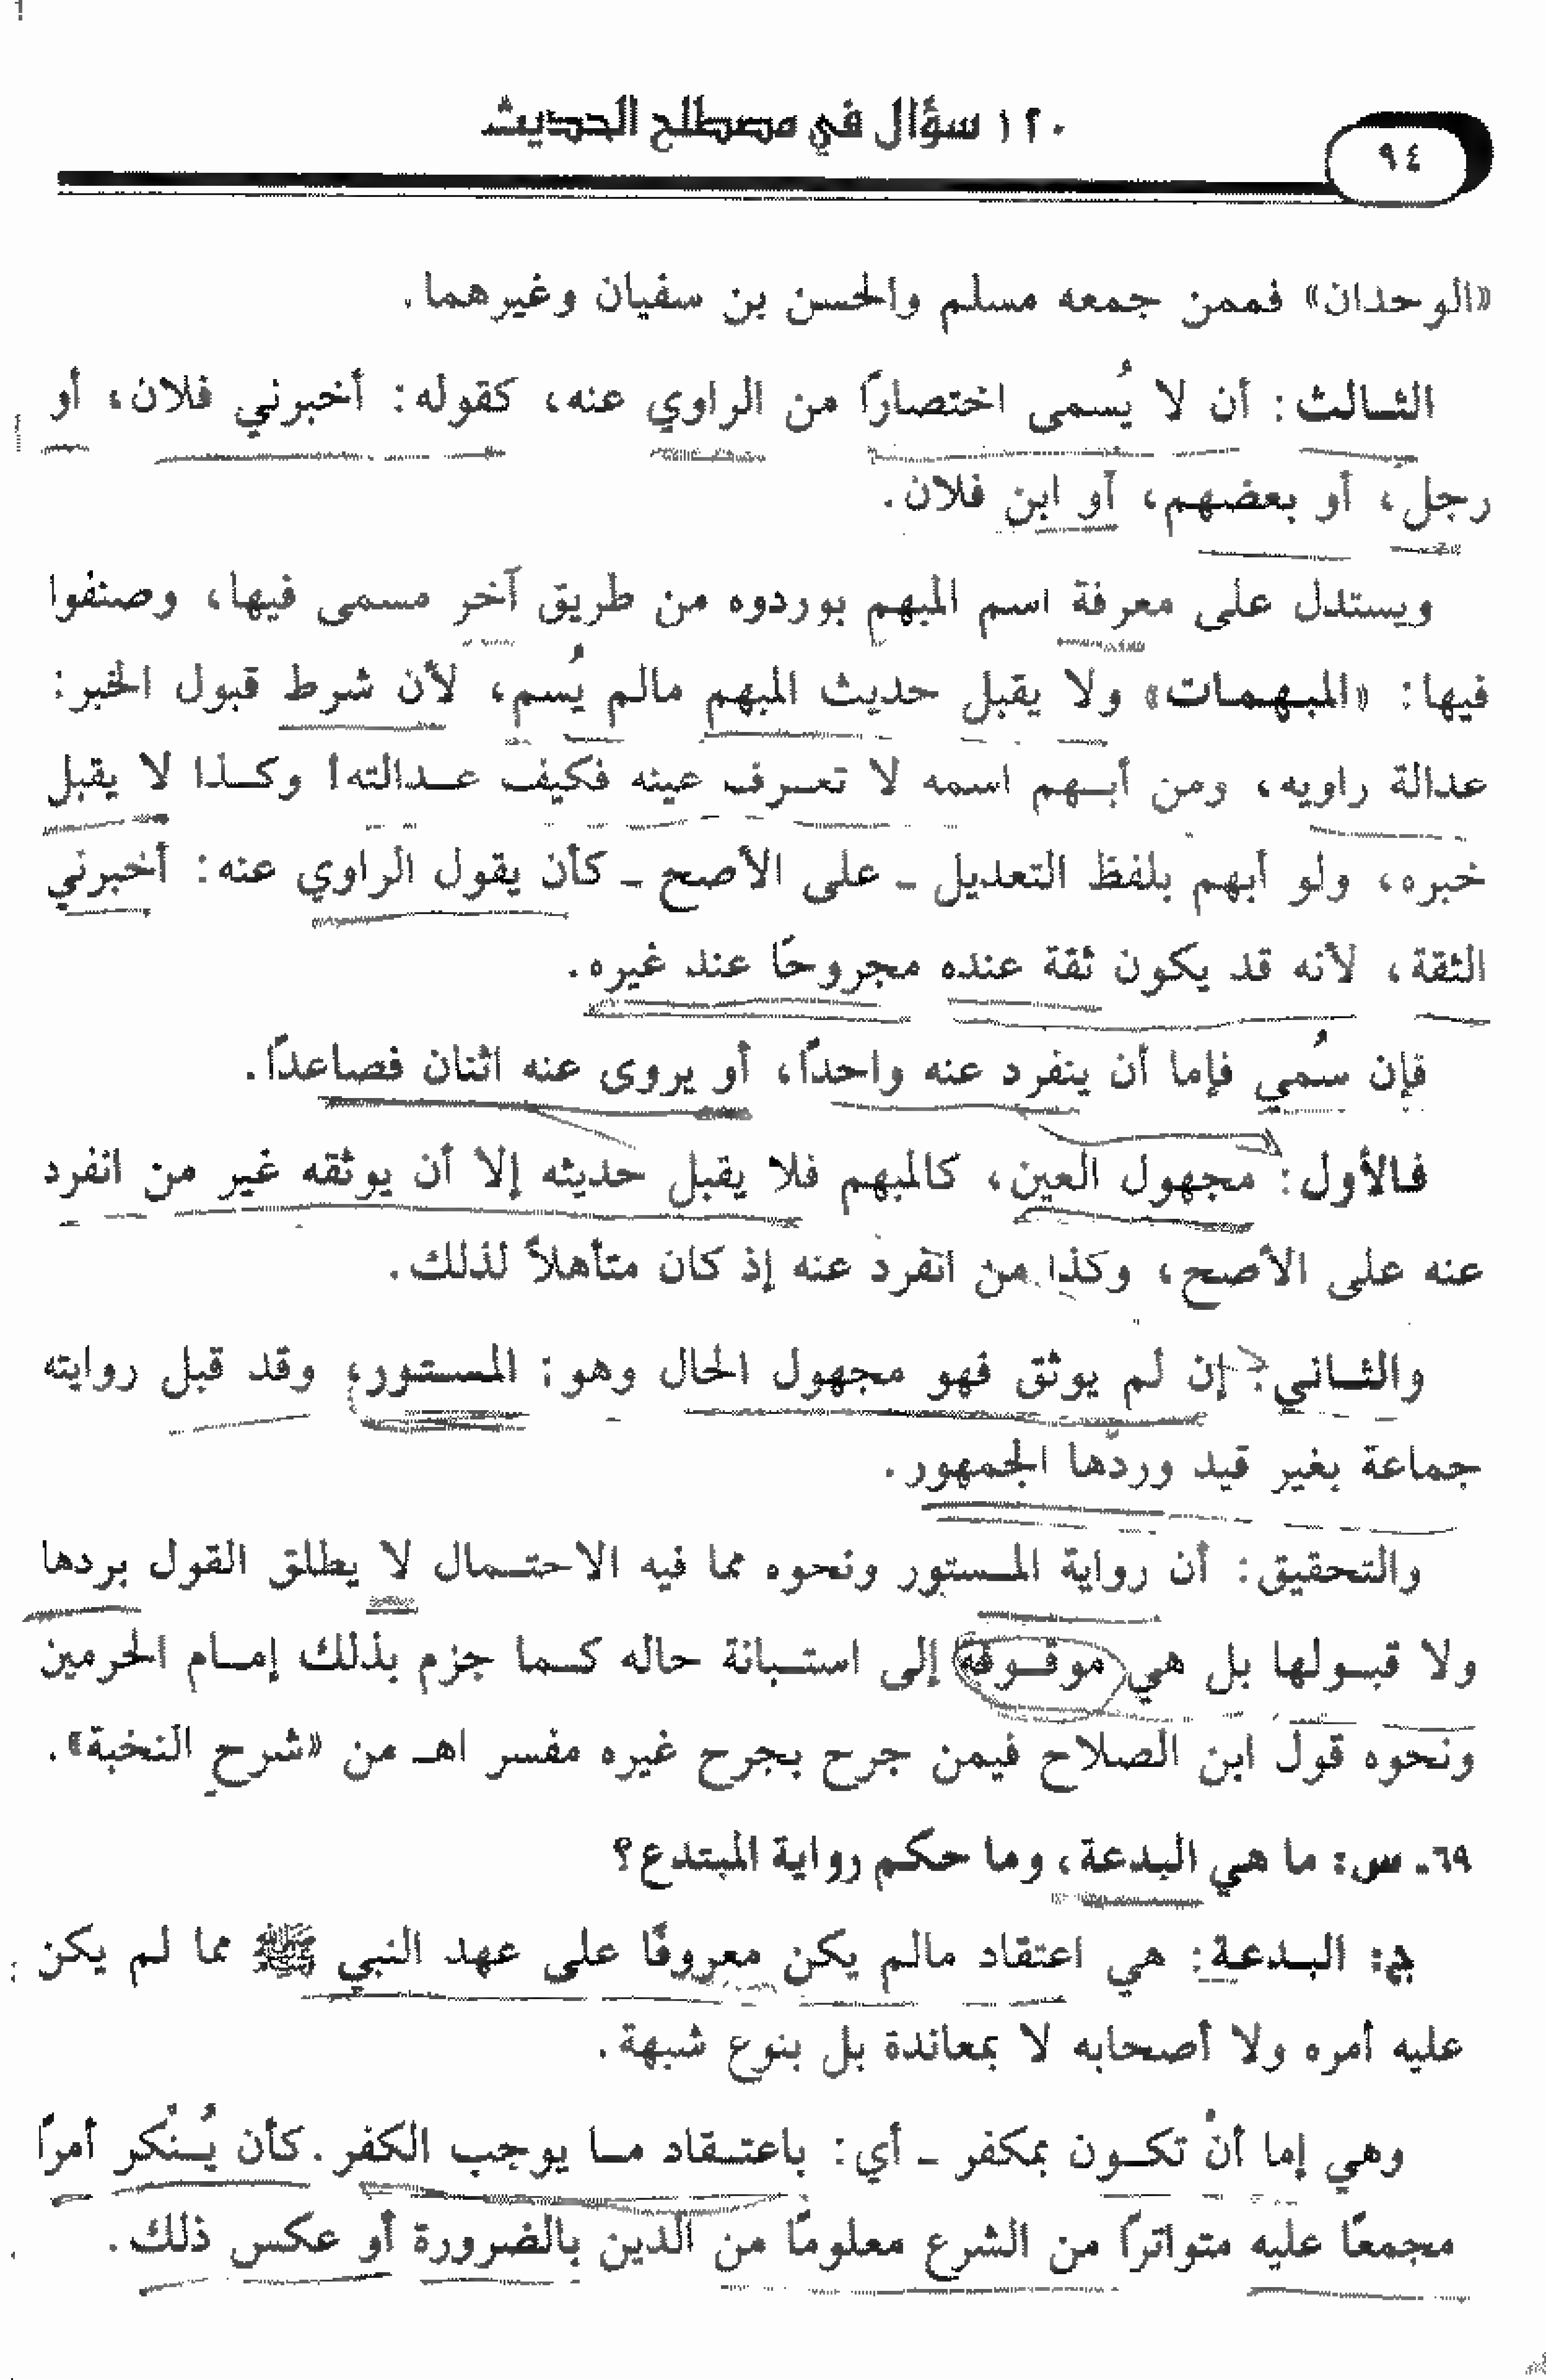 ١٢٠ سؤال في مصطلح الحديث
٩٤
«الوحدان» فممن جمعه مسلم والحسن بن سفيان وغيرهما.
الثالث: أن لا يُسمى اختصارًا من الراوي عنه، كقوله: أخبرني فلان، أو
رجل، أو بعضهم، أو ابن فلان.
ويستدل على معرفة اسم المبهم بوردوه من طريق آخر مسمى فيها، وصنفوا
فيها: «المبهمات» ولا يقبل حديث المبهم مالم يُسم، لأن شرط قبول الخبر:
عدالة راويه، ومن أبهم اسمه لا تعرف عينه فكيف عدالته! وكذا لا يقبل
خبره، ولو أبهم بلفظ التعديل - على الأصح - كأن يقول الراوي عنه: أخبرني
الثقة، لأنه قد يكون ثقة عنده مجروحًا عند غيره.
فإن سُمي فإما أن ينفرد عنه واحدًا، أو يروى عنه اثنان فصاعدًا.
فالأول: مجهول العين، كالمبهم فلا يقبل حديثه إلا أن يوثقه غير من انفرد
عنه على الأصح، وكذا من انفرد عنه إذ كان متأهلاً لذلك.
والثاني: إن لم يوثق فهو مجهول الحال وهو: المستور، وقد قبل روايته
جماعة بغير قيد وردّها الجمهور.
والتحقيق: أن رواية المستور ونحوه مما فيه الاحتمال لا يطلق القول بردها
ولا قبولها بل هي موقوفة إلى استبانة حاله كما جزم بذلك إمام الحرمين
ونحوه قول ابن الصلاح فيمن جرح بجرح غيره مفسر اهـ من «شرح النخبة».
٦٩- س: ما هي البدعة، وما حكم رواية المبتدع؟
ج: البدعة: هي اعتقاد مالم يكن معروفًا على عهد النبي ﷺ مما لم يكن
عليه أمره ولا أصحابه لا بمعاندة بل بنوع شبهة.
وهي إما أنْ تكون بمكفر - أي: باعتقاد ما يوجب الكفر. كأن يُنْكر أمرًا
مجمعًا عليه متواترًا من الشرع معلومًا من الدين بالضرورة أو عكس ذلك.